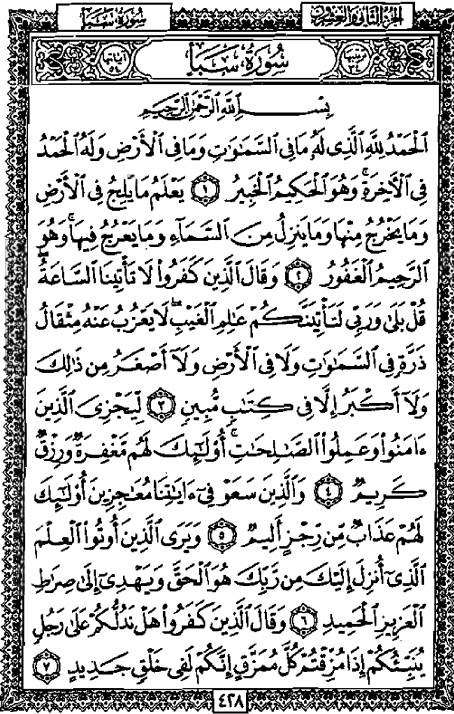 سُورَةُ سَبَإٍ الجزء الثاني والعشرون
آياتها ٥٤ سُورَةُ سَبَإٍ ترتيبها ٣٤
بِسْمِ اللَّهِ الرَّحْمَٰنِ الرَّحِيمِ
الْحَمْدُ لِلَّهِ الَّذِي لَهُ مَا فِي السَّمَٰوَٰتِ وَمَا فِي الْأَرْضِ وَلَهُ الْحَمْدُ
فِي الْأَخِرَةِ ۚ وَهُوَ الْحَكِيمُ الْخَبِيرُ ١ يَعْلَمُ مَا يَلِجُ فِي الْأَرْضِ
وَمَا يَخْرُجُ مِنْهَا وَمَا يَنزِلُ مِنَ السَّمَاءِ وَمَا يَعْرُجُ فِيهَا ۚ وَهُوَ
الرَّحِيمُ الْغَفُورُ ٢ وَقَالَ الَّذِينَ كَفَرُوا لَا تَأْتِينَا السَّاعَةُ ۖ
قُلْ بَلَىٰ وَرَبِّي لَتَأْتِيَنَّكُمْ عَٰلِمِ الْغَيْبِ ۖ لَا يَعْزُبُ عَنْهُ مِثْقَالُ
ذَرَّةٍ فِي السَّمَٰوَٰتِ وَلَا فِي الْأَرْضِ وَلَا أَصْغَرُ مِن ذَٰلِكَ
وَلَا أَكْبَرُ إِلَّا فِي كِتَٰبٍ مُّبِينٍ ٣ لِّيَجْزِيَ الَّذِينَ
ءَامَنُوا وَعَمِلُوا الصَّٰلِحَٰتِ ۚ أُولَٰئِكَ لَهُم مَّغْفِرَةٌ وَرِزْقٌ
كَرِيمٌ ٤ وَالَّذِينَ سَعَوْ فِي ءَايَٰتِنَا مُعَٰجِزِينَ أُولَٰئِكَ
لَهُمْ عَذَابٌ مِّن رِّجْزٍ أَلِيمٌ ٥ وَيَرَى الَّذِينَ أُوتُوا الْعِلْمَ
الَّذِي أُنزِلَ إِلَيْكَ مِن رَّبِّكَ هُوَ الْحَقَّ وَيَهْدِي إِلَىٰ صِرَٰطِ
الْعَزِيزِ الْحَمِيدِ ٦ وَقَالَ الَّذِينَ كَفَرُوا هَلْ نَدُلُّكُمْ عَلَىٰ رَجُلٍ
يُنَبِّئُكُمْ إِذَا مُزِّقْتُمْ كُلَّ مُمَزَّقٍ إِنَّكُمْ لَفِي خَلْقٍ جَدِيدٍ ٧
٤٢٨